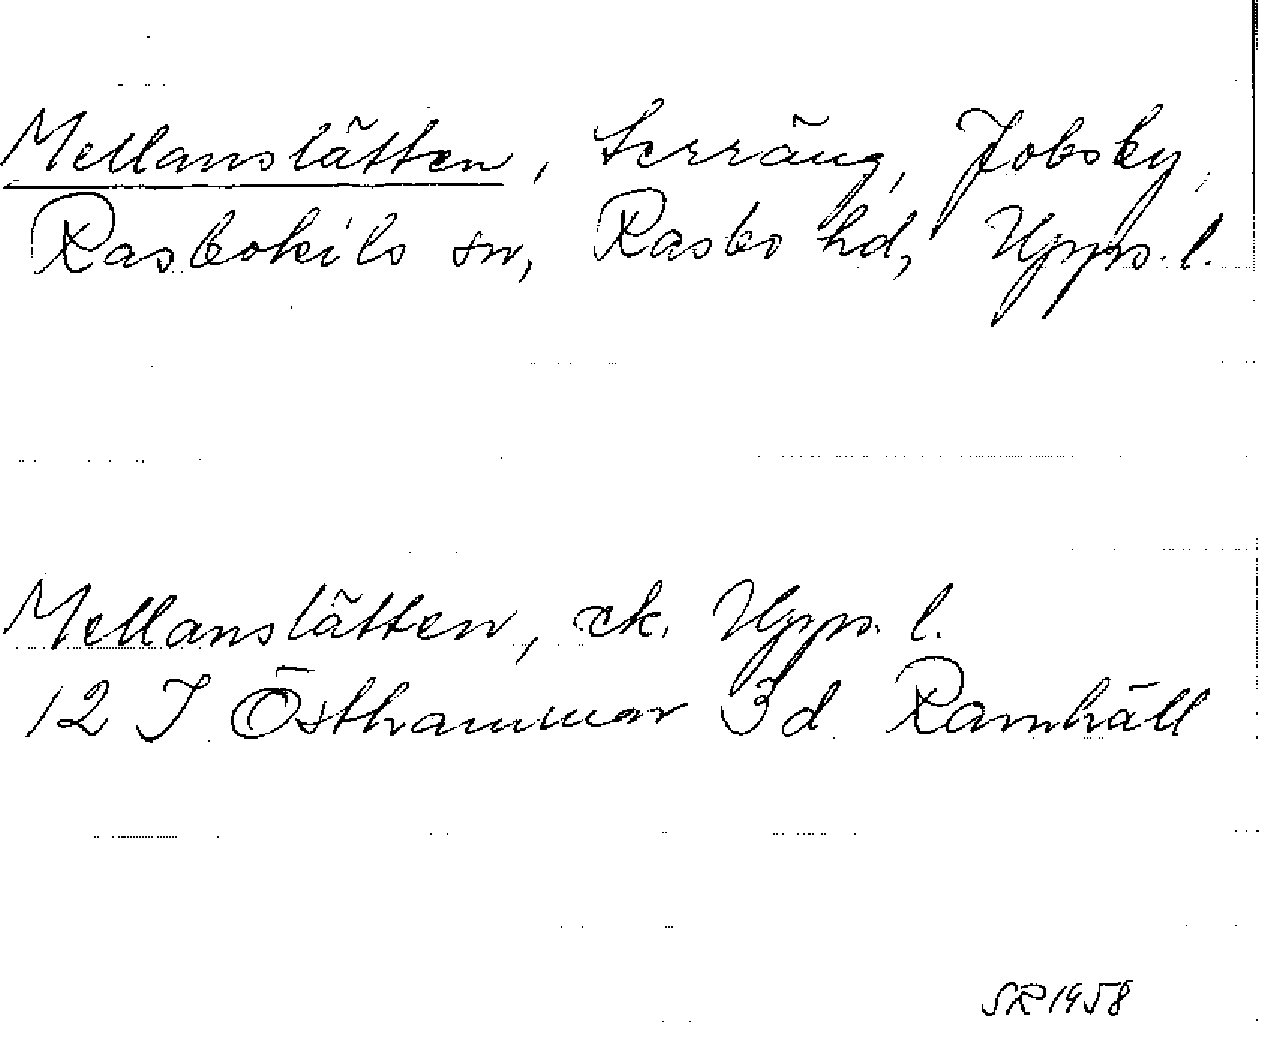 Mellanslätten, terräng, Jobsby,
Rasbokils sn, Rasbo hd, Upps. l.
Mellanslätten, ek. Upps. l.
12 I Östhammar 3d Ramhäll
SR 1958